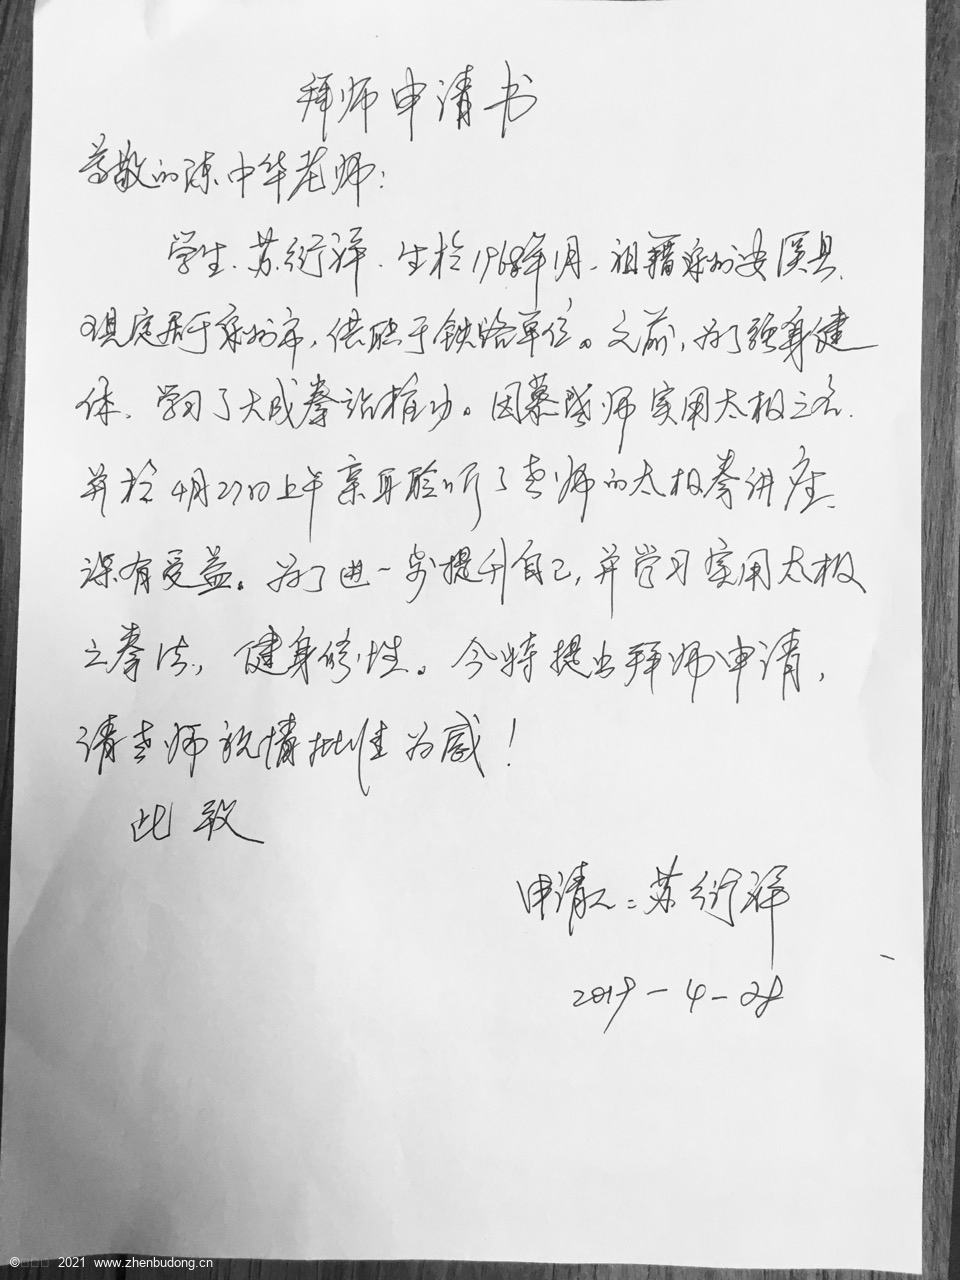 拜师申请书
尊敬的陈中华老师:
学生、苏衍祥、生於1968年1月、祖籍泉州安溪县、
现定居于泉州市,供职于铁路单位。之前,为了强身健
体、学习了大成拳站桩功。因慕陈师实用太极之名、
并於4月27日上午亲身聆听了老师的太极拳讲座、
深有受益。为了进一步提升自己,并学习实用太极
之拳法,健身修性。今特提出拜师申请,
请老师酌情批准为感!
此致
申请人:苏衍祥
2019-4-28
© 2021 www.zhenbudong.cn